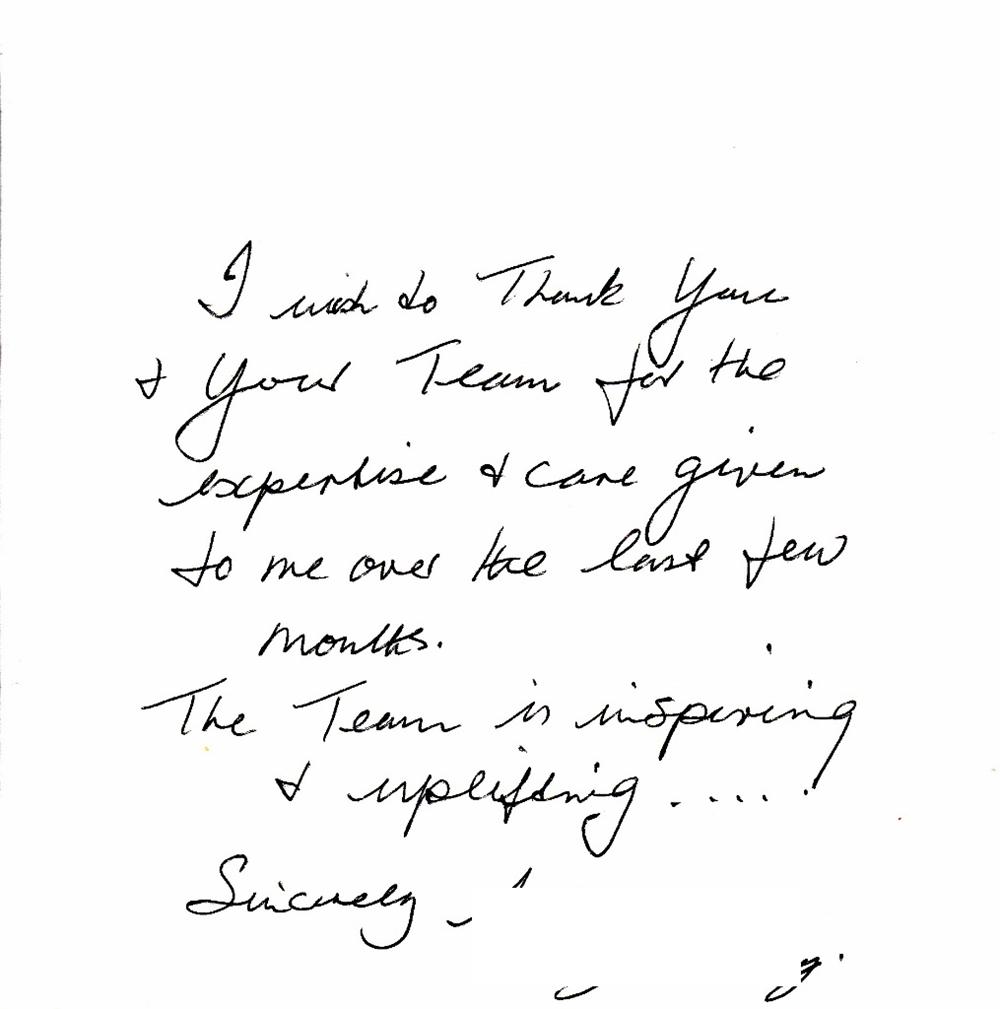 I wish to Thank You
& Your Team for the
expertise & care given
to me over the last few
months.
The Team is inspiring
& uplifting.....!
Sincerely